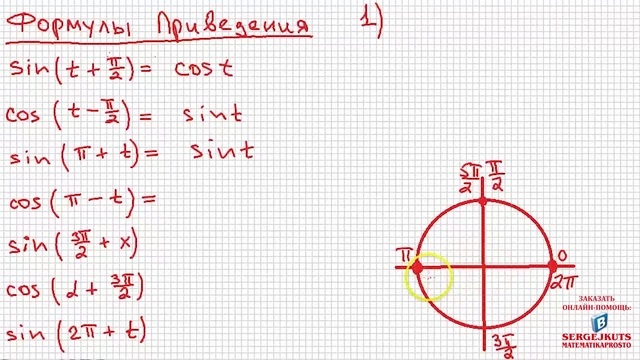 Формулы Приведения 1)
sin(t + π/2) = cost
cos(t - π/2) = sint
sin(π + t) = sint
cos(π - t) =
sin(3π/2 + x)
cos(α + 3π/2)
sin(2π + t)
5π/2 π/2
π 0
2π
3π/2
ЗАКАЗАТЬ
ОНЛАЙН-ПОМОЩЬ:
B
SERGEJKUTS
MATEMATIKAPROSTO